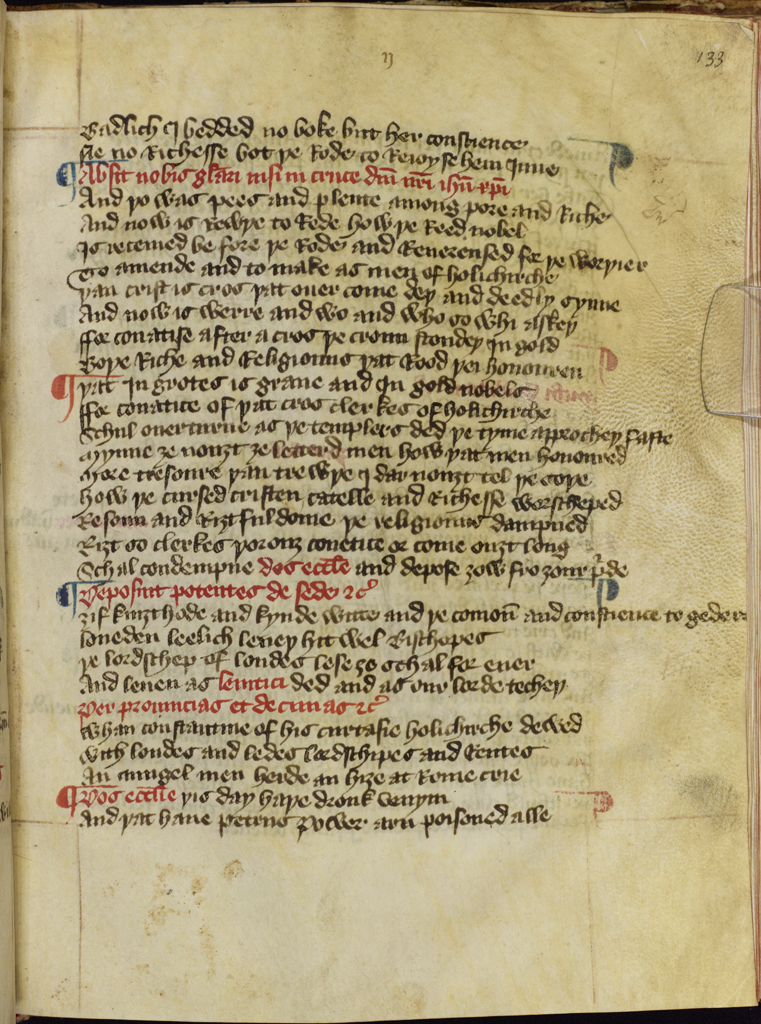 133
Sadlich I bedded no boke but her conscience
Ne no Richesse bot þe Rode to Reioyse hem Inne
Absit nobis glari nisi in cruce dni nri ihu xpi
And þo was pees and plente among pore and Riche
And now is rewþe to Rede how þe Reed nobel
Is receiued be fore þe Rode and Reuerensed for þe worþier
To amende and to make as men of holichirche
þan crist is cros þat ouer come deþ and deedly synne
And now is werre and wo and who so whi askeþ
ffor couatise after a cros þe croun stondeþ In gold
Boþe Riche and Religious þat Rood þei honouren
þat In grotes is graue and In gold nobels
ffor couatice of þat cros clerkes of holichirche
Schul ouerturne as þe templers ded þe tyme approcheþ faste
Mynne ȝe nouȝt ȝe lettred men how þat men honoured
More tresoure þan trewþe I dar nouȝt tel þe soþe
how þe cursed cristen catelle and Richesse worscheped
Resoun and Riȝtfuldome þe religious dampned
Riȝt so clerkes þorouȝ couetice or come ouȝt long
Schal condempne dos eccle and depose ȝow fro ȝour pde
Deposuit potentes de sede ⁊cͣ
ȝif knyȝthode and kynde witte and þe comoū and conscience to gedere
loueden leelich leueþ hit wel Bischopes
þe lordschep of londes lese ȝe schal for euer
And leuen as leuitici ded and as our lorde techeþ
Per primicias et decimas ⁊cͣ
Whan constantine of his curtasie holichirche dewed
With londes and ledes lordschipes and Rentes
An aungel men herde an hize at Rome crie
Dos eccle þis day haþe dronk venym
And þat haue petrus power arn poisoned alle